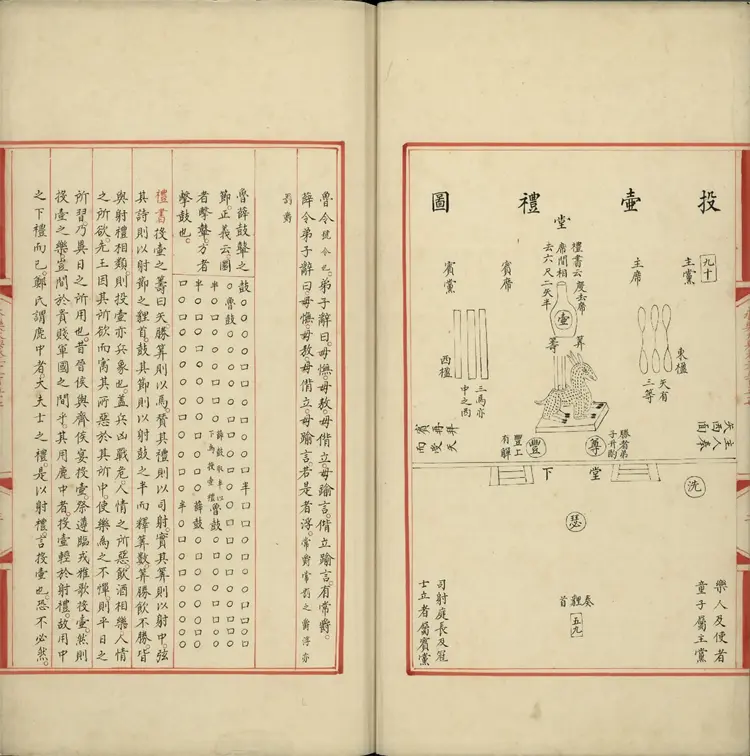 投壺禮圖
九十
主黨
主席
堂
禮書云度壺席
席間相
去六尺二矢半
賓席
賓黨
壺
算
籌
東楹
矢有
三等
三馬亦
中之西
西楹
主人奉
矢西面
勝者弟
子升酌
尊
豐
豐上
有觶
賓
而受
矢
堂下
洗
瑟
奏貍首
五九
樂人及使者
童子屬主黨
司射庭長及冠
士立者屬賓黨
魯令號令也。弟子辭曰。毋憮。毋敖。毋偝立。毋踰言。偝立踰言。有常爵。
薛令弟子辭曰。毋憮。毋敖。毋偝立。毋踰言。若是者浮。常爵常罰之爵浮亦
罰爵
魯薛鼓聲之
節。正義云。圜
者擊鼙。方者
擊鼓也。
鼓 半
魯鼓
半 薛鼓取半以下為投壺禮 魯鼓
半 薛鼓
半
禮書投壺之籌曰矢。勝算則以馬。贊其禮則以司射。實其算則以射中。弦
其詩則以射節之貍首。鼓其節則以射鼓之半。而釋算數算。勝飲不勝。皆
與射禮相類。則投壺亦兵象也。蓋兵凶戰危。人情之所惡。飲酒相樂。人情
之所欲。先王因其所欲。而寓其所惡於其所中。使樂為之不憚。則平日之
所習。乃異日之所用也。昔晉侯與齊侯宴投壺。祭遵臨戎雅歌投壺。然則
投壺之樂。豈間於貴賤軍國之間乎。其用鹿中者。投壺輕於射禮。故用中
之下禮而已。鄭氏謂鹿中者。大夫士之禮。是以射禮言投壺也。恐不必然。